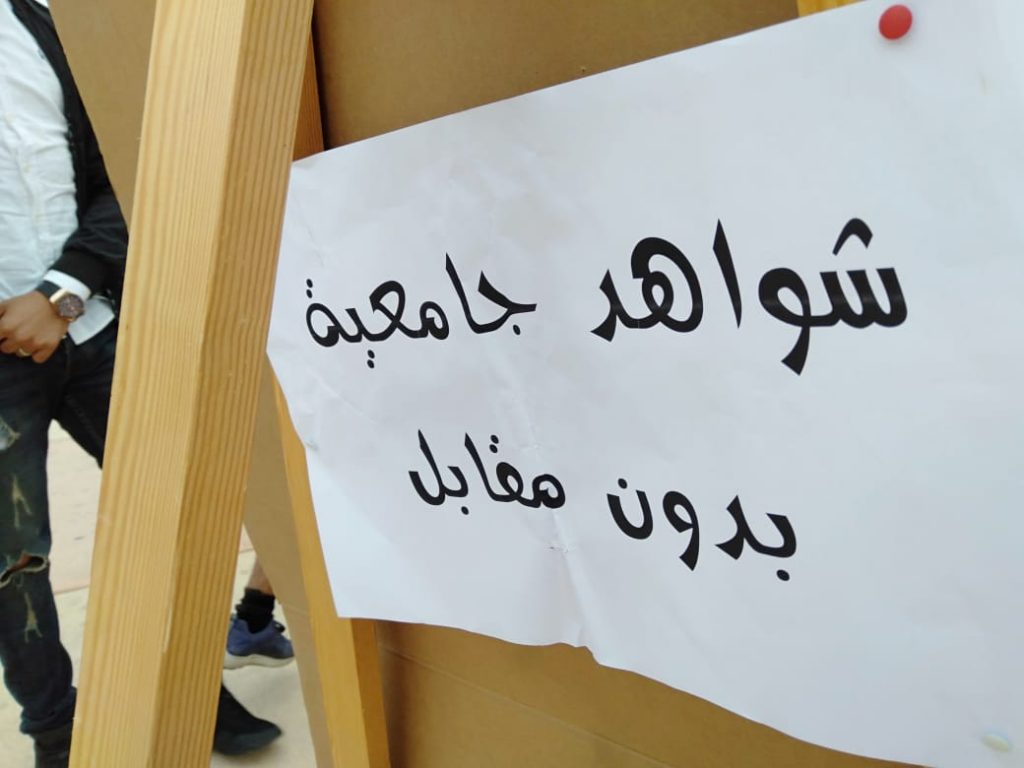 شواهد جامعية
بدون مقابل